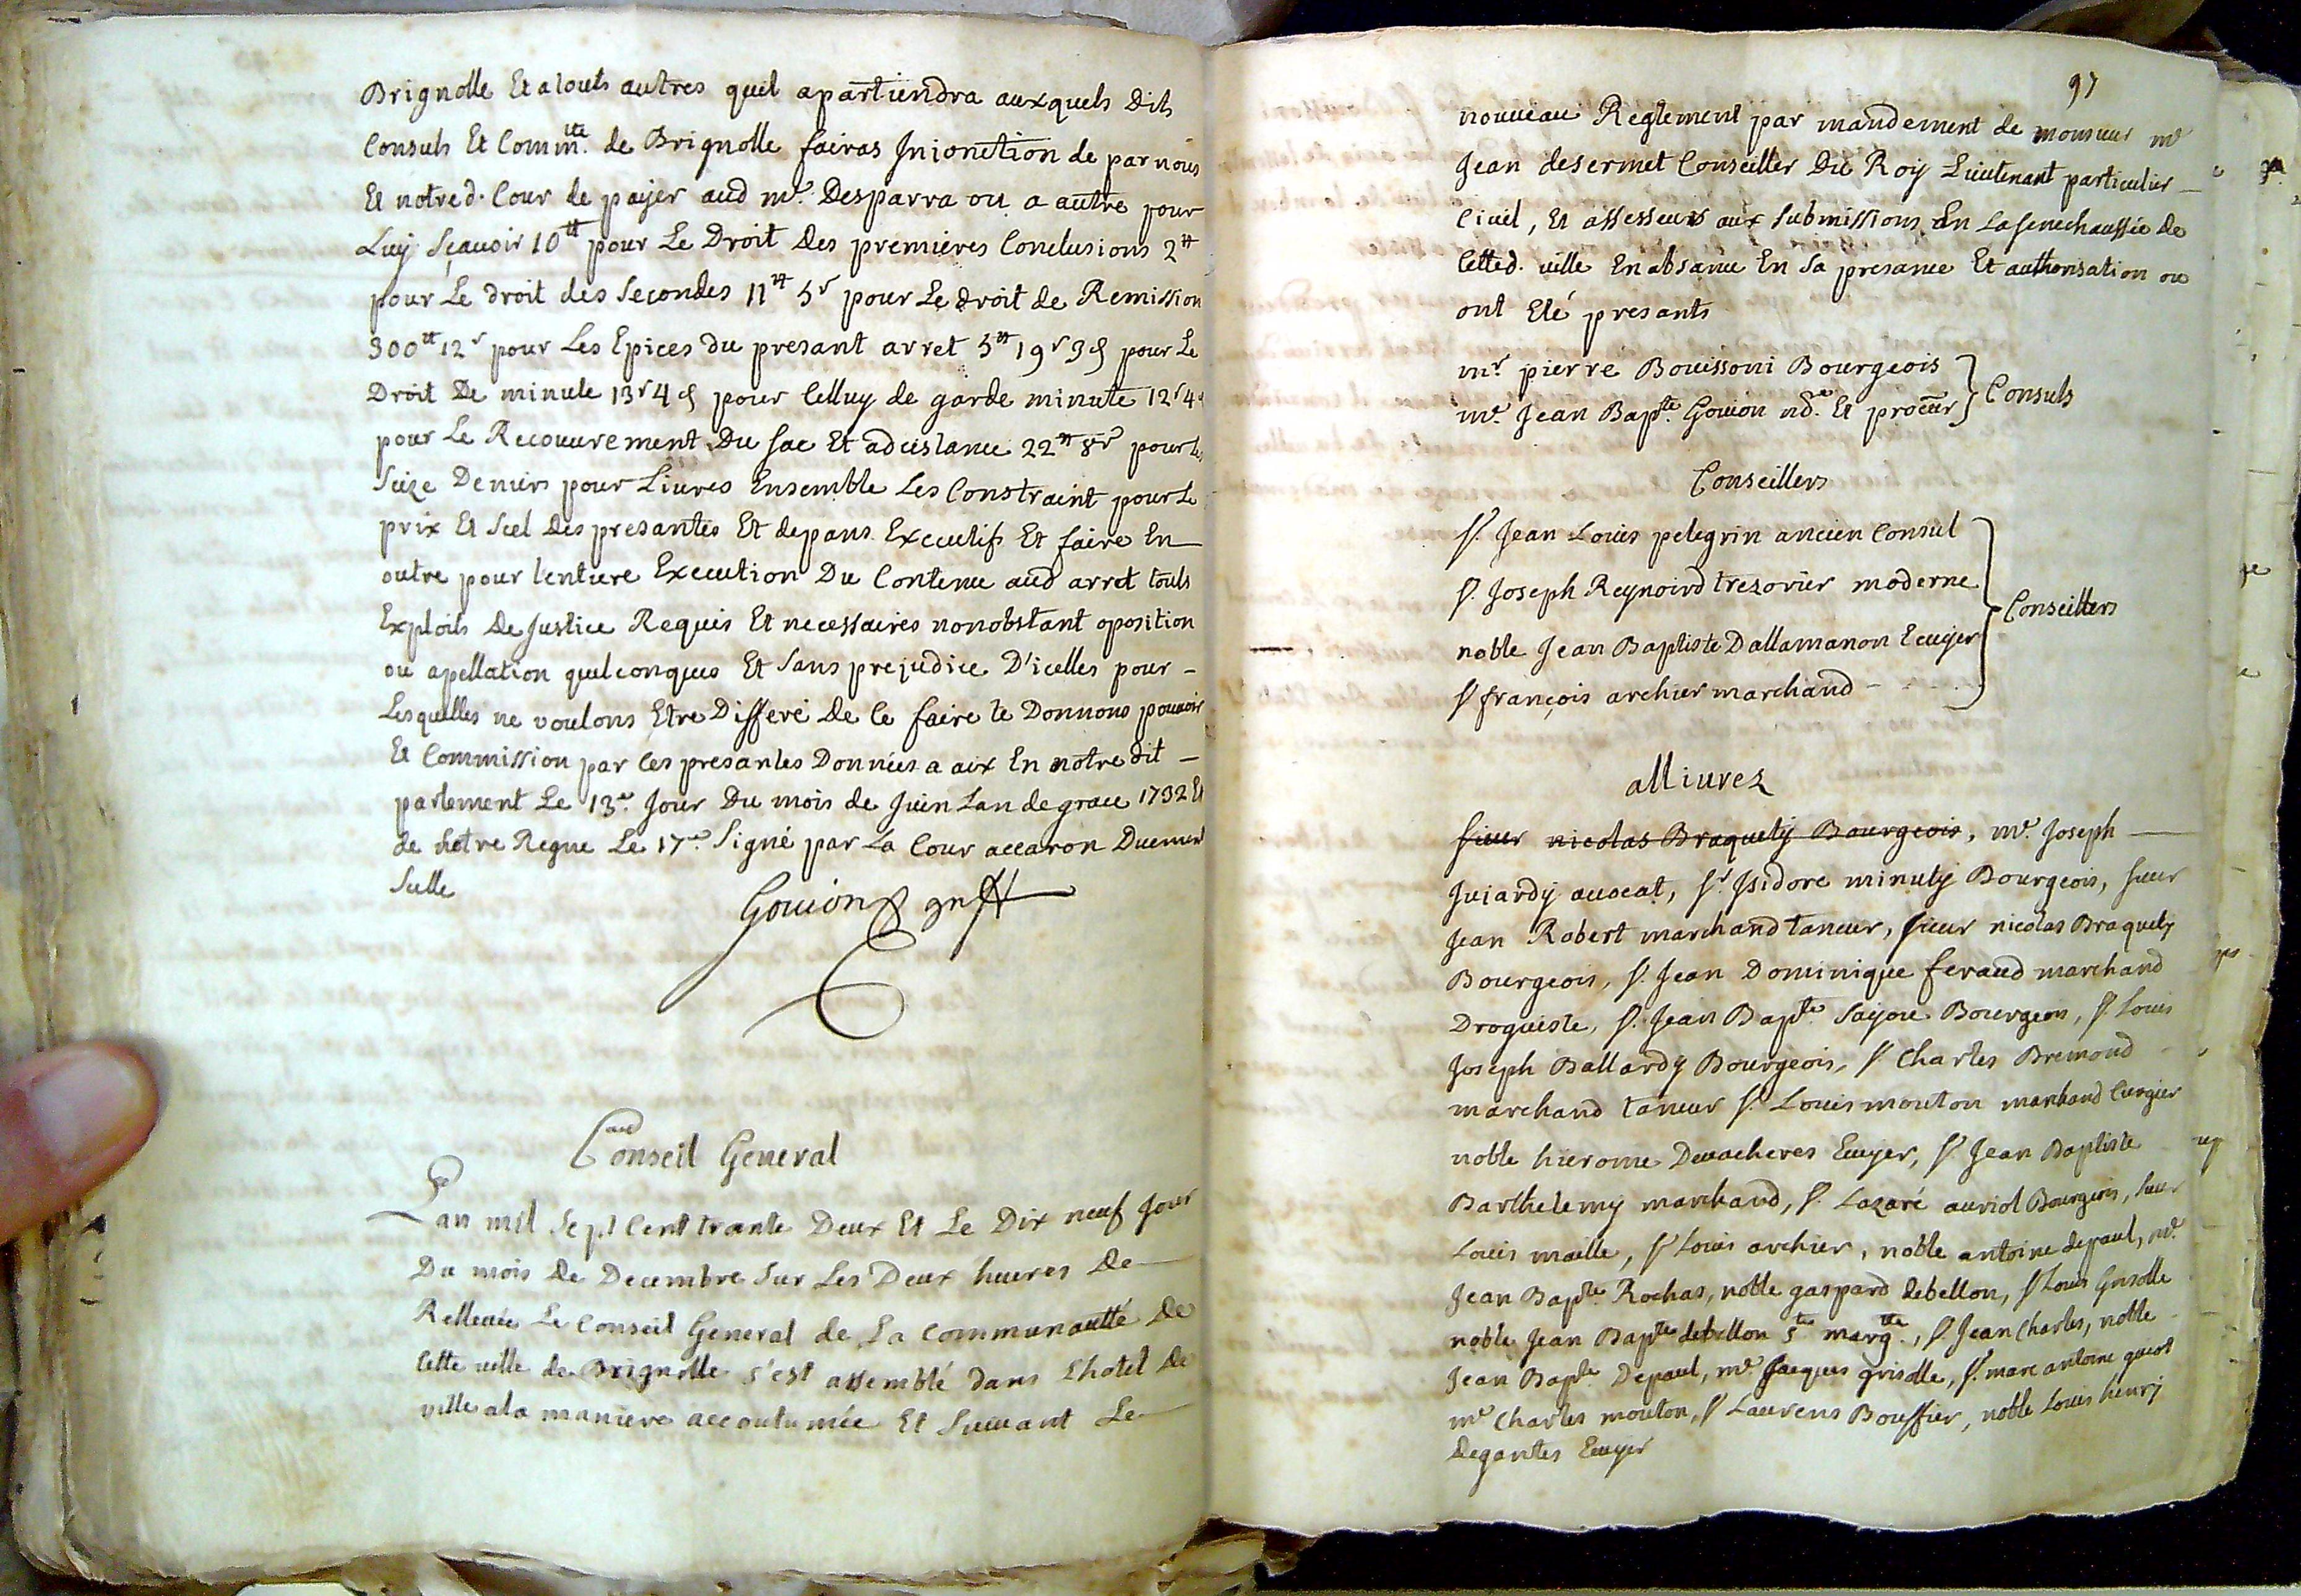 Brignolle Et a touts autres quil apartiendra auxquels dits
Consuls Et Comm.te de Brignolle fairas Injonction de par nous
Et notred. Cour de payer aud me. Desparra ou a autre pour
Luy Sçavoir 10tt pour Le Droit des premieres Conclusions 2tt
pour Le droit des Secondes 11tt 5s pour Le droit de Remission
300tt 12s pour Les Epices du presant arret 5tt 19s 3d pour Le
Droit De minute 13s 4d pour Celluy de garde minute 12s 4d
pour Le Recouvrement Du Sac Et 22tt 8s pour les
Seize Deniers pour Livres Ensemble Les Constraint pour Le
prix Et Scel des presantes Et depans Executifs Et faire En
outre pour lentiere Execution Du Contenu aud arret touts
Exploits De Justice Requis Et necessaires nonobstant oposition
ou apellation quelconques Et Sans prejudice D'icelles pour
Lesquelles ne voulons Etre Differé de ce faire te Donnons pouvoir
Et Commission par Ces presantes Données a aix En notre dit
parlement Le 13e. Jour Du mois de Juin Lan de grace 1732 Et
de notre Regne Le 17me. Signé par La Cour accaron Duement
Sellé
Gouion greff
Conseil General
Lan mil Sept Cent trante Deux Et Le Dix neuf Jour
Du mois de Decembre Sur Les Deux heures De
Rellevée Le Conseil General de La Communautté De
Cette ville de Brignolle s'est assemblé dans Lhotel De
ville a la maniere accoutumée Et Suivant Le
97
nouveau Reglement par mandement de monsieur me
Jean desermet Conseiller Du Roy Lieutenant particulier
Civil, Et assesseur aux Submissions En La Senechaussée de
Cetted. ville En absance En Sa presance Et authorisation ou
ont Eté presants
mr. pierre Bouissoni Bourgeois
me. Jean Bapte. Gouion nore. Et procur
Consuls
Conseillers
Sr. Jean Louis pelegrin ancien Consul
Sr. Joseph Reynoird trezorier moderne
noble Jean Baptiste Dallamanon Ecuyer
Sr françois archier marchand
Conseillers
allivrez
sieur nicolas Braquety Bourgeois, me. Joseph
Jujardy avocat, Sr Isidore minuty Bourgeois, Sieur
Jean Robert marchand taneur, Sieur nicolas Braquety
Bourgeois, Sr. Jean Dominique feraud marchand
Droguiste, Sr. Jean Bapte. Sajou Bourgeois, Sr. Louis
Joseph Ballardy Bourgeois, Sr Charles Bremond
marchand taneur Sr. Louis mouton marchand Cirgier
noble hierome Devacheres Ecuyer, Sr Jean Baptiste
Barthelemy marchand, Sr Lazaré auriol Bourgeois, Sieur
Louis maille, Sr Louis archier, noble antoine depaul, me.
Jean Bapte. Rochas, noble gaspard debellon, Sr Louis Grisolle
noble Jean Bapte debellon Ste margte., Sr Jean Charles, noble
Jean Bapte Depaul, me Jacques grisolle, Sr. marc antoine guiot
me Charles mouton, Sr Laurens Bouffier, noble Louis henry
Degantes Ecuyer